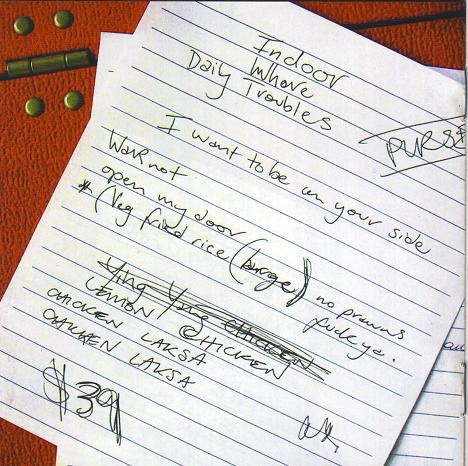 Indoor
Whore
Daily Troubles
PURSE
I want to be on your side
War not
open my door
* (Veg fried rice (large) no prawns
fuck ya.
Ying Yong CHICKEN
LEMON CHICKEN
CHICKEN LAKSA
CHICKEN LAKSA
$39